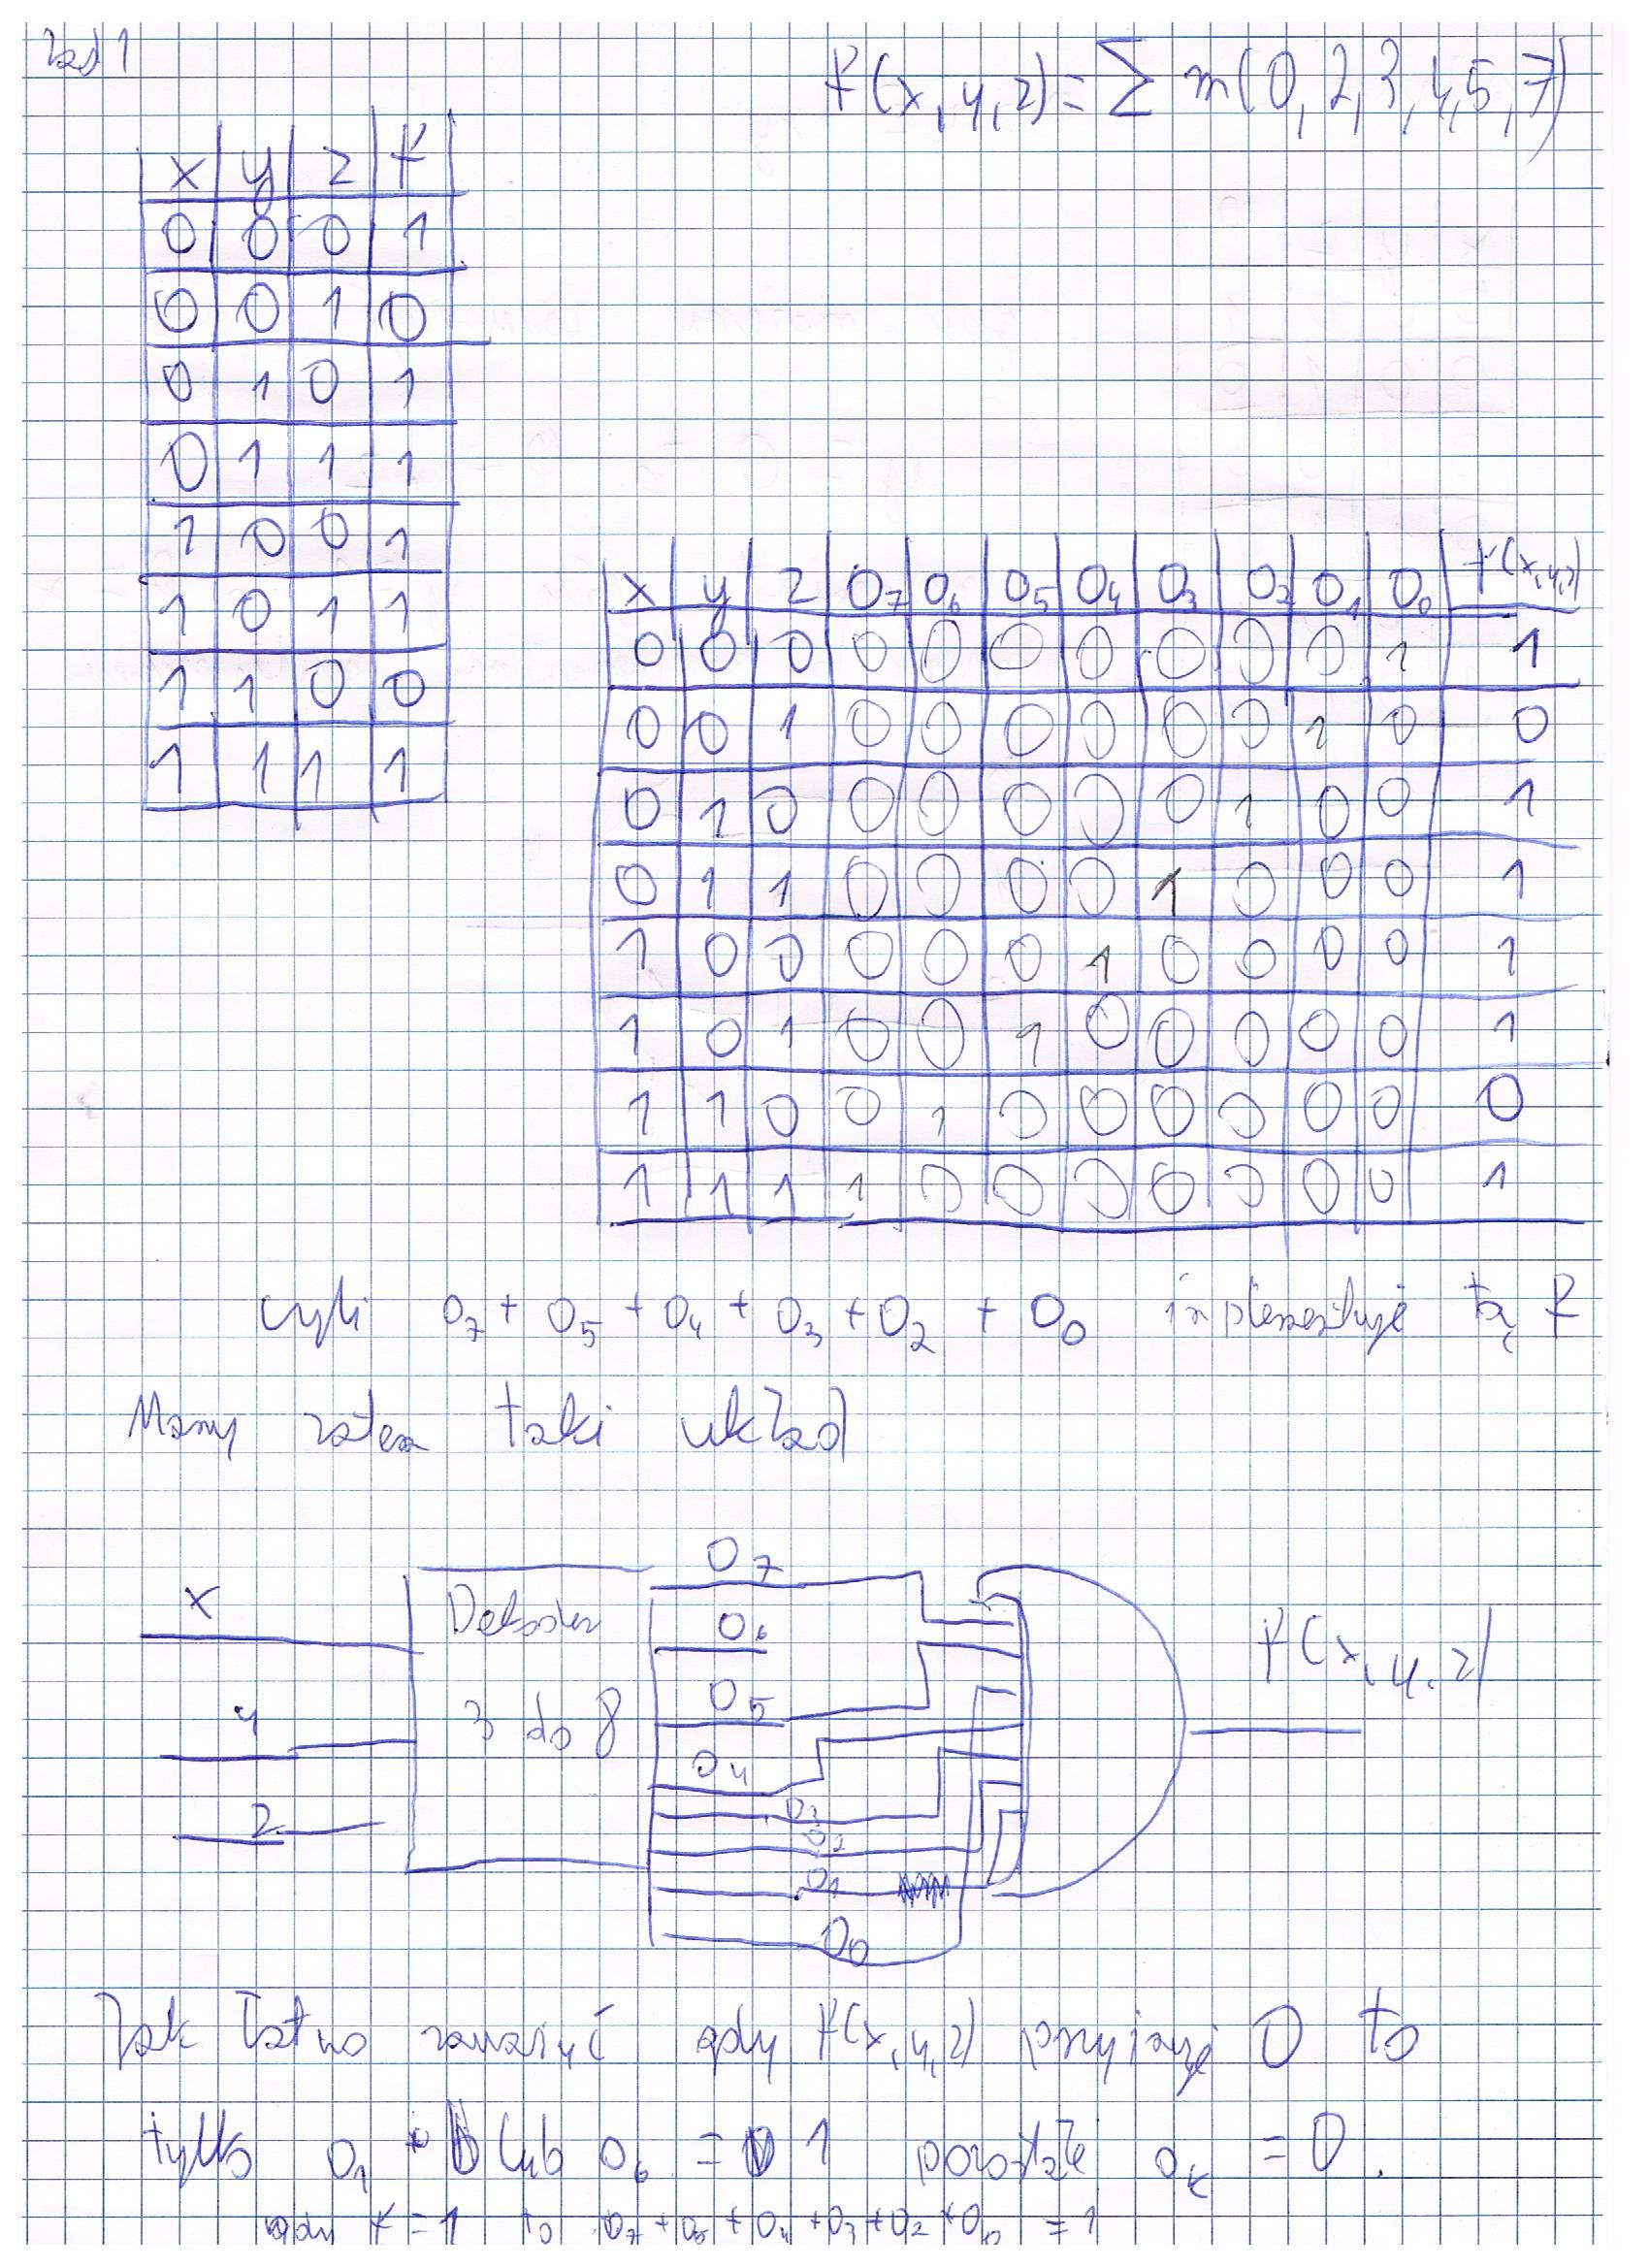 Zad 1
f(x, y, z) = ∑ m(0, 2, 3, 4, 5, 7)
x y z f
0 0 0 1
0 0 1 0
0 1 0 1
0 1 1 1
1 0 0 1
1 0 1 1
1 1 0 0
1 1 1 1
x y z O7 O6 O5 O4 O3 O2 O1 O0 f(x,y,z)
0 0 0 0 0 0 0 0 0 0 1 1
0 0 1 0 0 0 0 0 0 1 0 0
0 1 0 0 0 0 0 0 1 0 0 1
0 1 1 0 0 0 0 1 0 0 0 1
1 0 0 0 0 0 1 0 0 0 0 1
1 0 1 0 0 1 0 0 0 0 0 1
1 1 0 0 1 0 0 0 0 0 0 0
1 1 1 1 0 0 0 0 0 0 0 1
czyli O7 + O5 + O4 + O3 + O2 + O0 implementuje tą f
Mamy zatem taki układ
x
y
z
Dekoder
3 do 8
O7
O6
O5
O4
O3
O2
O1
O0
f(x, y, z)
Jak łatwo zauważyć gdy f(x, y, z) przyjmuje 0 to
tylko O1 lub O6 = 1 pozostałe Ok = 0.
gdy f = 1 to O7 + O5 + O4 + O3 + O2 + O0 = 1